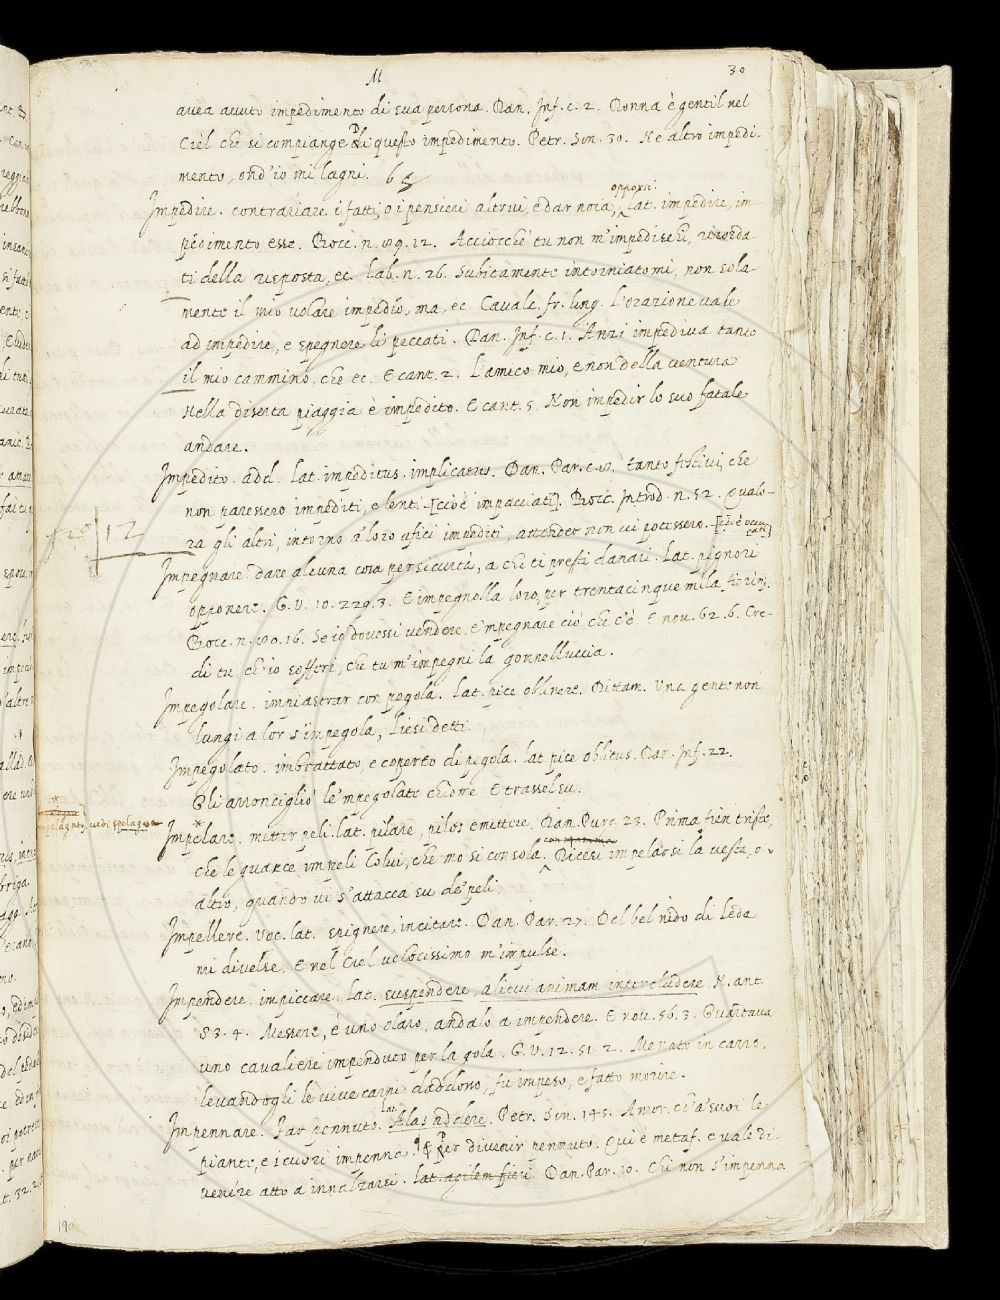 M
30
avea avuto impedimento di sua persona. Dan. Inf. c. 2. Donna è gentil nel
Ciel che si compiange Di questo impedimento. Petr. Son. 30. Ne altro impedi-
mento, ond'io mi lagni.
opporsi.
Impedire. contrariare i fatti, o i pensieri altrui, e dar noia, Lat. impedire, im-
pedimento esse. Bocc. n. 89. 12. Acciocchè tu non m'impedissi, ricorda-
ti della risposta, ec. Lab. n. 26. Subitamente intorniatomi, non sola-
mente il mio volare impedio, ma, ec. Cavalc. fr. ling. L'orazione vale
ad impedire, e spegnere li peccati. Dan. Inf. c. 1. Anzi impediva tanto
il mio cammino, che ec. E cant. 2. L'amico mio, e non della ventura
Nella diserta piaggia è impedito. E cant. 5. Non impedir lo suo fatale
andare.
Impedito. add. Lat. impeditus. implicatus. Dan. Par. c. tanto festivi, che
non paressero impediti, e lenti [cioè impacciati]. Bocc. Introd. n. 52. Qualo-
12
ra gli altri, intorno a' loro ufici impediti, attender non vi potessero. [cioè occu-
pati]
Impegnare. dare alcuna cosa per sicurtà, a chi ti presti danari. Lat. pignori
opponere. G. V. 10. 229. 3. E impegnolla loro per trentacinque mila fiorini.
Bocc. n. 80. 16. Se io dovessi vendere, e 'mpegnare ciò che c'è. E nov. 62. 6. Cre-
di tu, ch'io sofferi, che tu m'impegni la gonnelluccia.
Impegolare. impiastrar con pegola. Lat. pice oblinere. Dittam. Una gente non
lungi a lor s'impegola, Liesi detti.
Impegolato. imbrattato, e coperto di pegola. Lat. pice oblitus. Dan. Inf. 22.
Gli arronciglió le 'mpegolate chiome E trassel su.
vedi spelagare
Impelare. metter peli. Lat. pilare, pilos emittere. Dan. Purg. 23. Prima fien triste,
che le guance impeli Colui, che mo si consola. Dicesi impelarsi la vesta, o
altro, quando vi s'attacca su de' peli.
Impellere. voc. lat. spignere, incitare. Dan. Par. 27. Del bel nido di Leda
mi divelse, E nel Ciel velocissimo m'impulse.
Impendere. impiccare. Lat. suspendere, alicui animam intercludere. N. ant.
53. 4. Messere, è uno claro, andalo a impendere. E nov. 56. 3. Guardava
uno cavaliere impenduto per la gola. G. V. 12. 51. 2. Menato in carro,
levandogli le vive carni daddosso, fu impeso, e fatto morire.
Impennare. Far pennuto. Lat. Alas addere. Petr. Son. 145. Amor, ch'a' suoi le
piante, e i cuori impenna. per divenir pennuto. Qui è metaf. e vale di-
venire atto a innalzarsi. Lat. agilem fieri. Dan. Par. 10. Chi non s'impenna
190